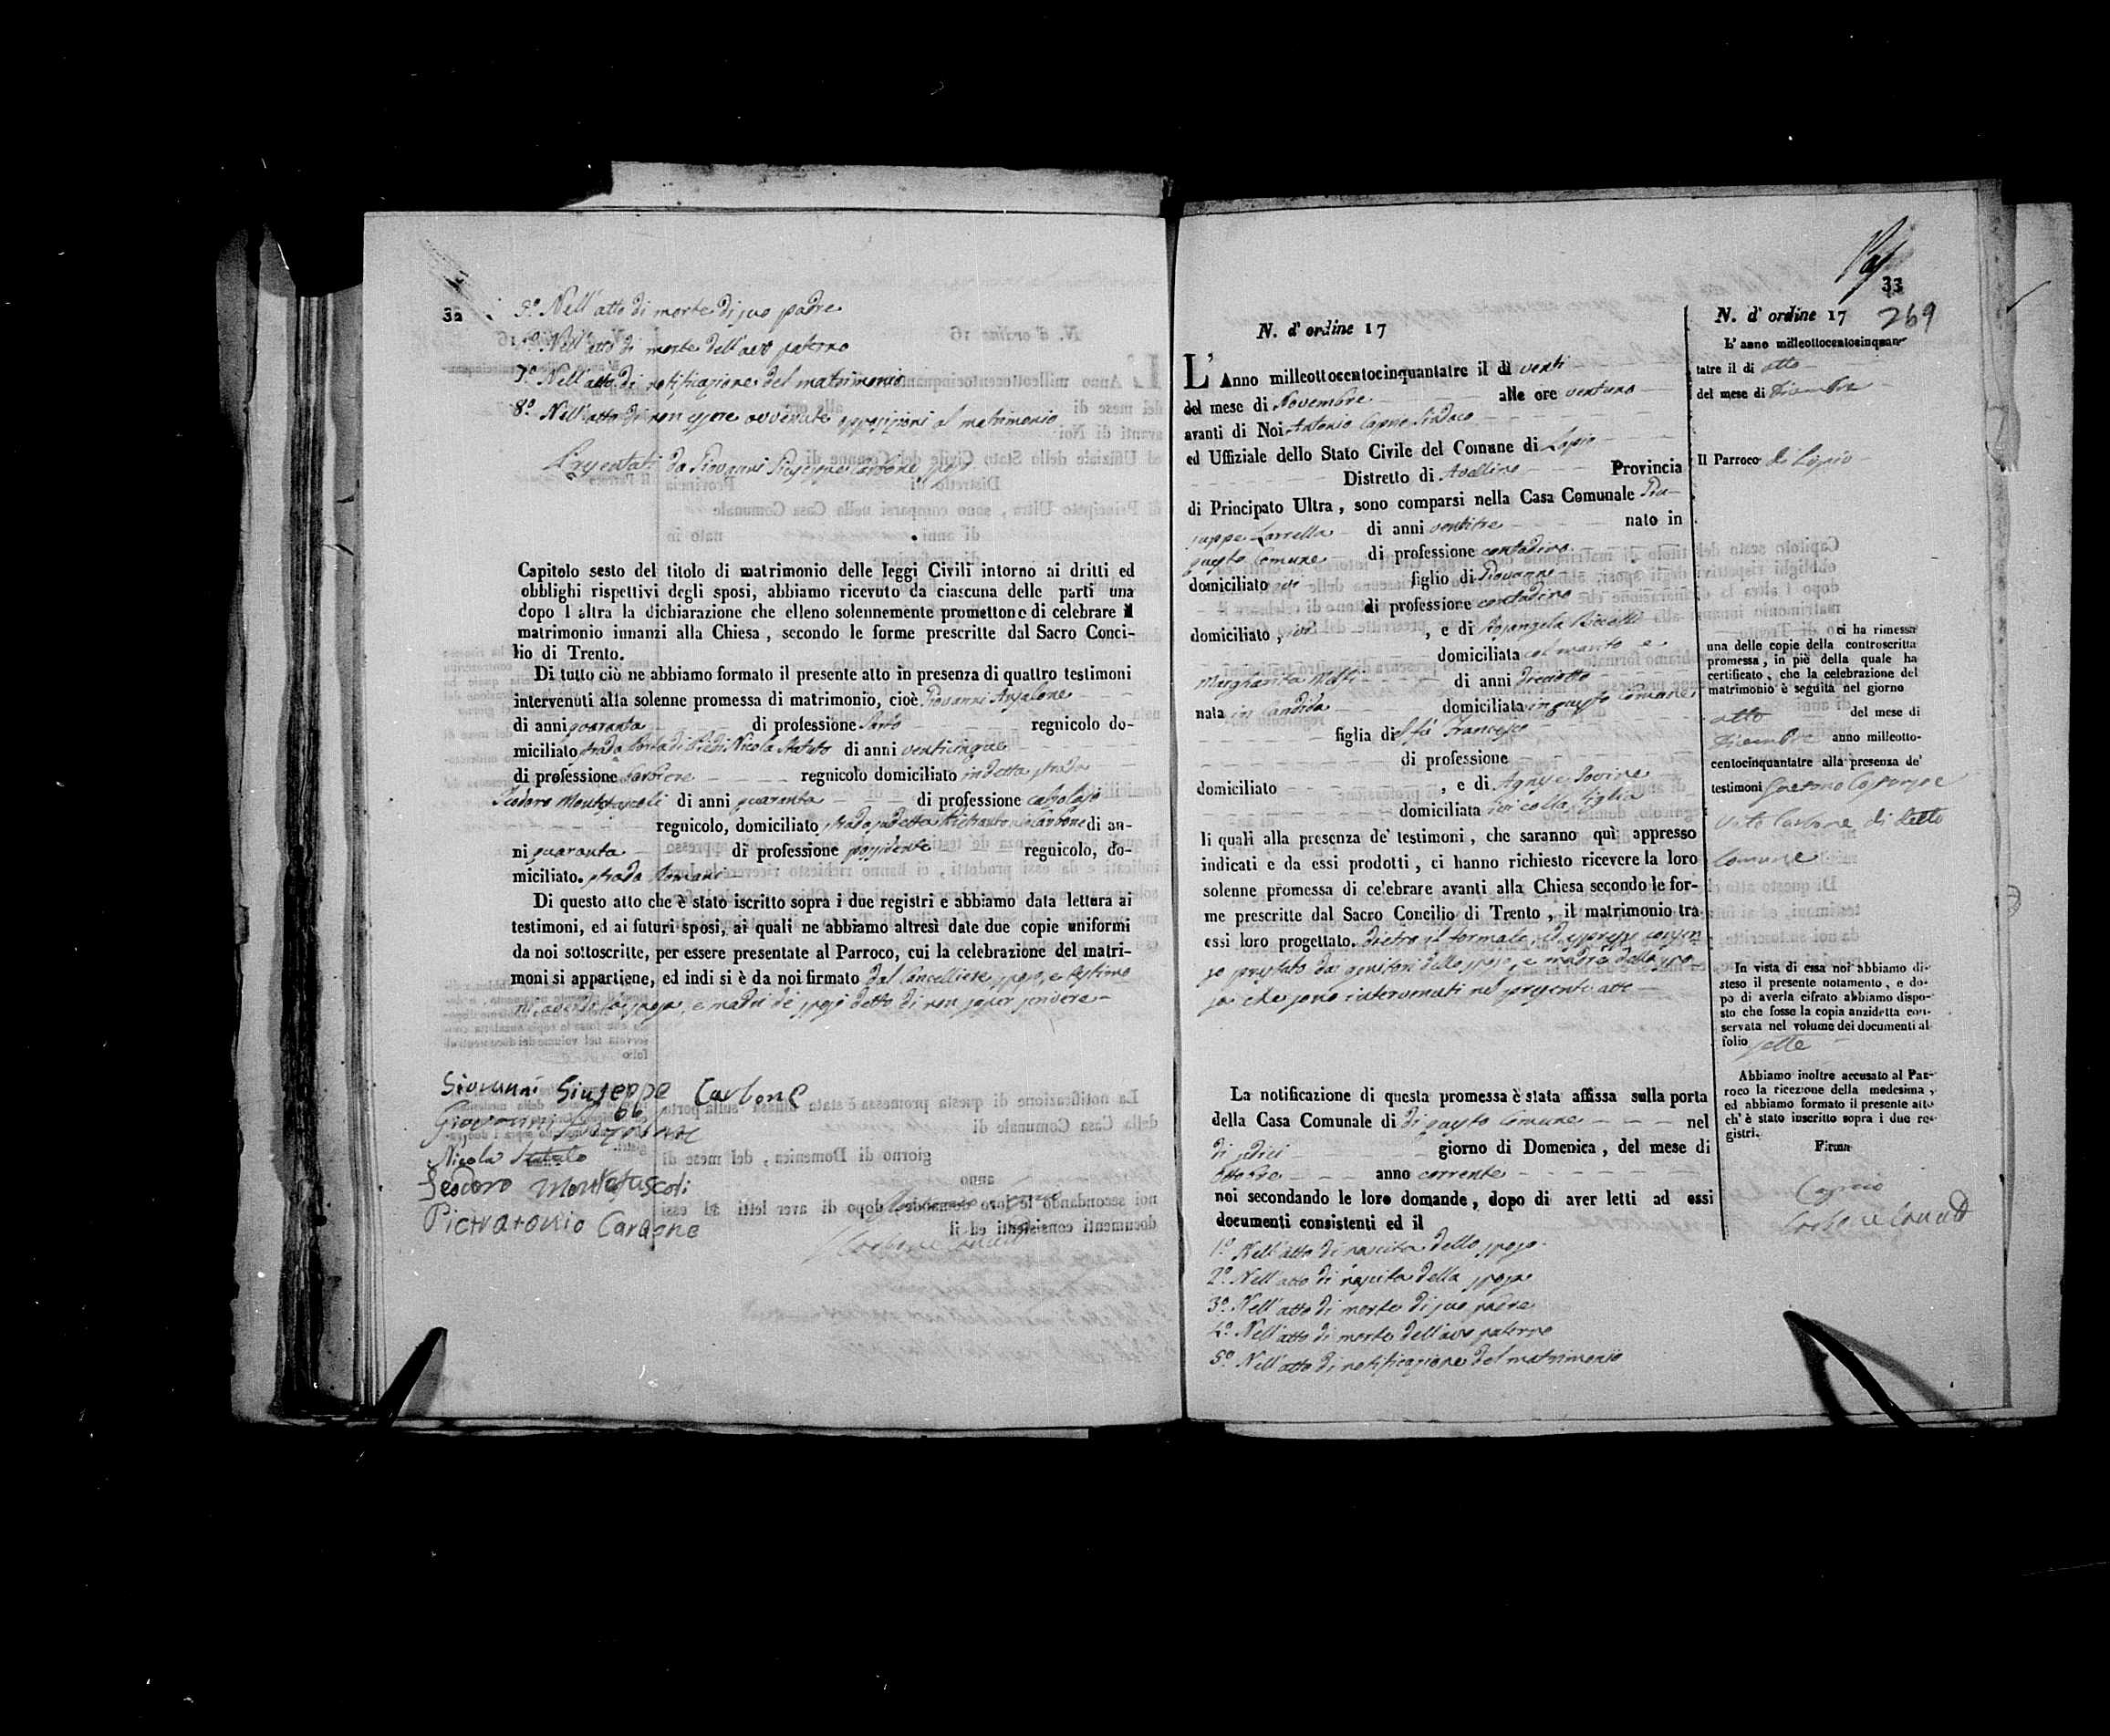 32
5º Nell'atto di morte di suo padre
6º Nell'atto di morte dell'avo paterno
7º Nell'atto di notificazione del matrimonio
8º Nell'atto di non essere avvenute opposizioni al matrimonio
Presentati da Giovanni Giuseppe Carbone sposo
Capitolo sesto del titolo di matrimonio delle leggi Civili intorno ai dritti ed
obblighi rispettivi degli sposi, abbiamo ricevuto da ciascuna delle parti una
dopo l altra la dichiarazione che elleno solennemente promettono di celebrare il
matrimonio innanzi alla Chiesa, secondo le forme prescritte dal Sacro Conci-
lio di Trento.
Di tutto ciò ne abbiamo formato il presente atto in presenza di quattro testimoni
intervenuti alla solenne promessa di matrimonio, cioè Giovanni Ansalone
di anni quaranta di professione Sarto regnicolo do-
miciliato strada Porta di Piedi Nicola Statuto di anni venticinque
di professione barbiere regnicolo domiciliato in detta strada
Teodoro Montefuscoli di anni quaranta di professione calzolajo
regnicolo, domiciliato strada sudetta Pietrantonio Carbone di an-
ni quaranta di professione possidente regnicolo, do-
miciliato. strada
Di questo atto che è stato iscritto sopra i due registri e abbiamo data lettura ai
testimoni, ed ai futuri sposi, ai quali ne abbiamo altresì date due copie uniformi
da noi sottoscritte, per essere presentate al Parroco, cui la celebrazione del matri-
moni si appartiene, ed indi si è da noi firmato dal Cancelliere, sposo, e testimo
ni, avendo la sposa, e madri de' sposi detto di non saper scrivere
Giovanni Giuseppe Carbone
Giovanni
Nicola Statuto
Teodoro Montefuscoli
Pietrantonio Carbone
33
269
N. d' ordine 17
L' Anno milleottocentocinquantatre il di venti
del mese di Novembre alle ore ventuno
avanti di Noi Antonio Sindaco
ed Uffiziale dello Stato Civile del Comune di Lapio
Distretto di Avellino Provincia
di Principato Ultra, sono comparsi nella Casa Comunale Giu-
seppe di anni ventitre nato in
questo Comune di professione contadino
domiciliato ivi figlio di Giovanni
di professione contadino
domiciliato, ivi, e di Rosangela
domiciliata col marito e
Margherita di anni dieciotto
nata in Candida domiciliata in questo Comune
figlia di fu Francesco
di professione
domiciliato, e di Agnese Iovine
domiciliata ivi colla figlia
li quali alla presenza de' testimoni, che saranno quì appresso
indicati e da essi prodotti, ci hanno richiesto ricevere la loro
solenne promessa di celebrare avanti alla Chiesa secondo le for-
me prescritte dal Sacro Concilio di Trento, il matrimonio tra
essi loro progettato. dietro il formale, ed espresso consen
so prestato dai genitori dello sposo, e madre della spo-
sa che sono intervenuti nel presente atto
La notificazione di questa promessa è stata affissa sulla porta
della Casa Comunale di di questo Comune nel
di sedici giorno di Domenica, del mese di
Ottobre anno corrente
noi secondando le loro domande, dopo di aver letti ad essi
documenti consistenti ed il
1º Nell'atto di nascita dello sposo
2º Nell'atto di nascita della sposa
3º Nell'atto di morte di suo padre
4º Nell'atto di morte dell'avo paterno
5º Nell'atto di notificazione del matrimonio
N. d' ordine 17
L' anno milleottocentocinquan-
tatre il di otto
del mese di Dicembre
Il Parroco di Lapio
ci ha rimessa
una delle copie della controscritta
promessa, in piè della quale ha
certificato, che la celebrazione del
matrimonio è seguita nel giorno
otto del mese di
Dicembre anno milleotto-
centocinquantatre alla presenza de'
testimoni Gaetano
Vito Carbone di detto
Comune
In vista di essa noi abbiamo di-
steso il presente notamento, e do-
po di averla cifrato abbiamo dispo-
sto che fosse la copia anzidetta con-
servata nel volume dei documenti al
folio sette
Abbiamo inoltre accusato al Par-
roco la ricezione della medesima,
ed abbiamo formato il presente atto
ch' è stato inscritto sopra i due re-
gistri.
Firma
Carbone